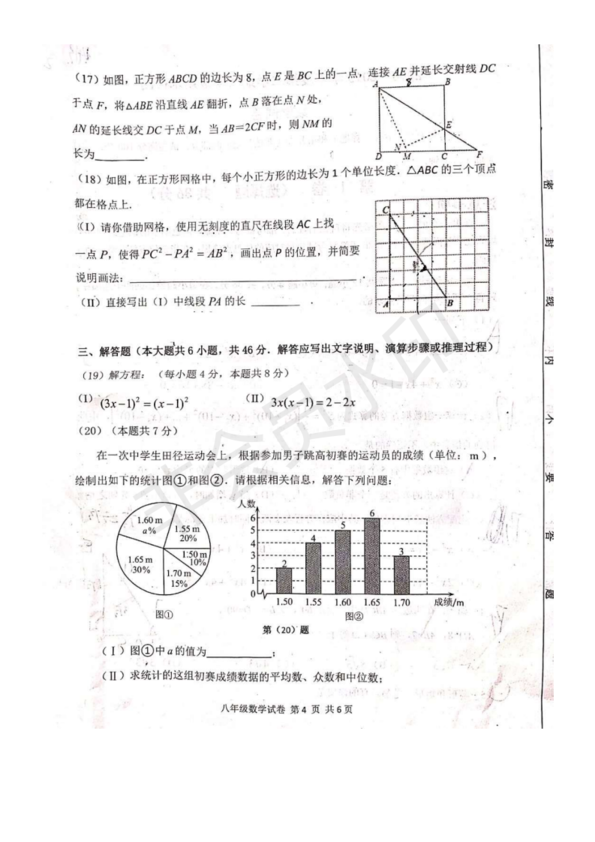 (17) 如图，正方形 ABCD 的边长为 8，点 E 是 BC 上的一点，连接 AE 并延长交射线 DC
于点 F，将△ABE 沿直线 AE 翻折，点 B 落在点 N 处，
AN 的延长线交 DC 于点 M，当 AB=2CF 时，则 NM 的
长为________.
A 8 B
E
N
D M C F
(18) 如图，在正方形网格中，每个小正方形的边长为 1 个单位长度．△ABC 的三个顶点
都在格点上．
(Ⅰ) 请你借助网格，使用无刻度的直尺在线段 AC 上找
一点 P，使得 PC² − PA² = AB²，画出点 P 的位置，并简要
说明画法：________________________．
(Ⅱ) 直接写出（Ⅰ）中线段 PA 的长 ________．
C
A B
三、解答题（本大题共 6 小题，共 46 分．解答应写出文字说明、演算步骤或推理过程）
(19) 解方程：（每小题 4 分，本题共 8 分）
(Ⅰ) (3x−1)² = (x−1)² (Ⅱ) 3x(x−1) = 2−2x
(20) （本题共 7 分）
在一次中学生田径运动会上，根据参加男子跳高初赛的运动员的成绩（单位：m），
绘制出如下的统计图①和图②．请根据相关信息，解答下列问题：
1.60 m
a%
1.55 m
20%
1.50 m
10%
1.65 m
30%
1.70 m
15%
图①
人数
6
5
4
3
2
1
0
2 4 5 6 3
1.50 1.55 1.60 1.65 1.70 成绩/m
图②
第（20）题
(Ⅰ) 图①中 a 的值为__________；
(Ⅱ) 求统计的这组初赛成绩数据的平均数、众数和中位数；
八年级数学试卷 第 4 页 共 6 页
密
封
线
内
不
要
答
题
非会员水印